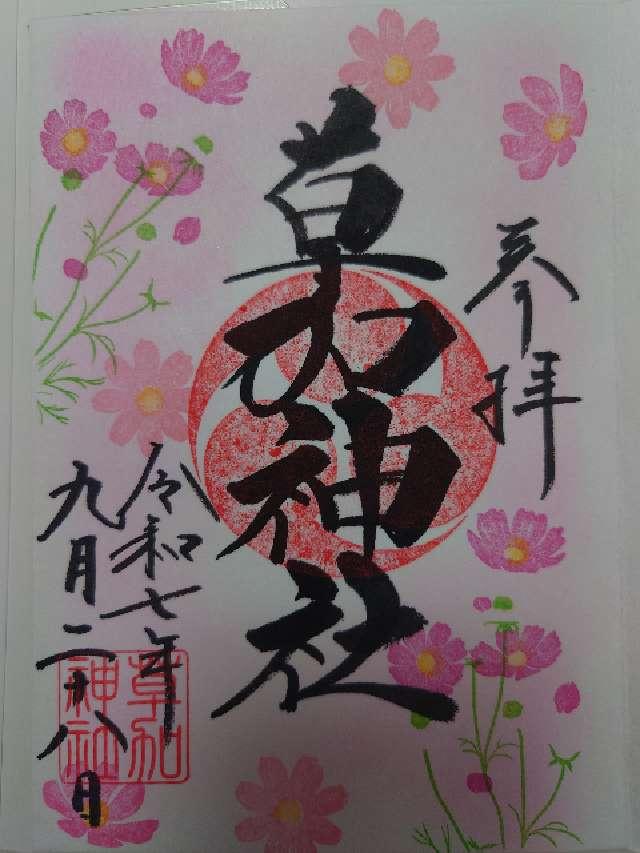 参拝
草加神社
令和七年
九月二十八日
草加
神社